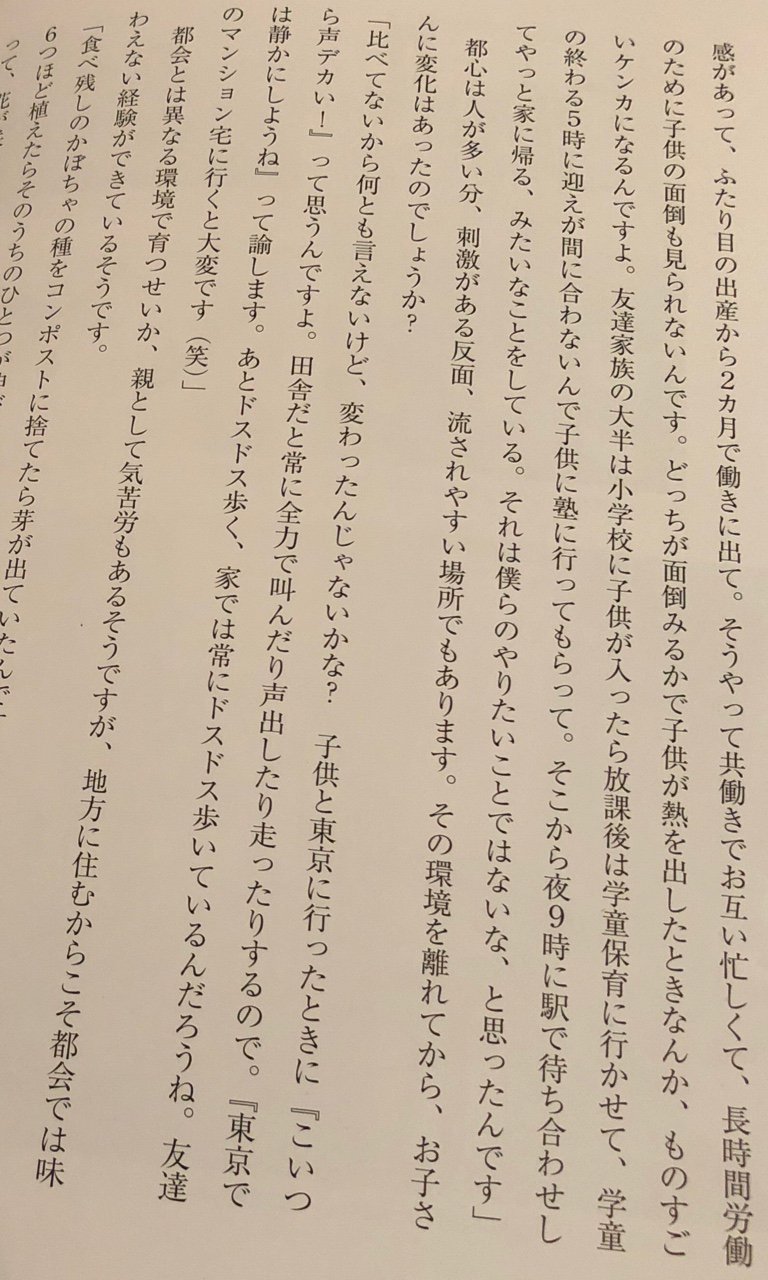 感があって、ふたり目の出産から2カ月で働きに出て。そうやって共働きでお互い忙しくて、長時間労働
のために子供の面倒も見られないんです。どっちが面倒みるかで子供が熱を出したときなんか、ものすご
いケンカになるんですよ。友達家族の大半は小学校に子供が入ったら放課後は学童保育に行かせて、学童
の終わる5時に迎えが間に合わないんで子供に塾に行ってもらって。そこから夜9時に駅で待ち合わせし
てやっと家に帰る、みたいなことをしている。それは僕らのやりたいことではないな、と思ったんです」
都心は人が多い分、刺激がある反面、流されやすい場所でもあります。その環境を離れてから、お子さ
んに変化はあったのでしょうか?
「比べてないから何とも言えないけど、変わったんじゃないかな? 子供と東京に行ったときに『こいつ
ら声デカい!』って思うんですよ。田舎だと常に全力で叫んだり声出したり走ったりするので。『東京で
は静かにしようね』って諭します。あとドスドス歩く、家では常にドスドス歩いているんだろうね。友達
のマンション宅に行くと大変です(笑)」
都会とは異なる環境で育つせいか、親として気苦労もあるそうですが、地方に住むからこそ都会では味
わえない経験ができているそうです。
「食べ残しのかぼちゃの種をコンポストに捨てたら芽が出ていたんで
6つほど植えたらそのうちのひとつが
って、